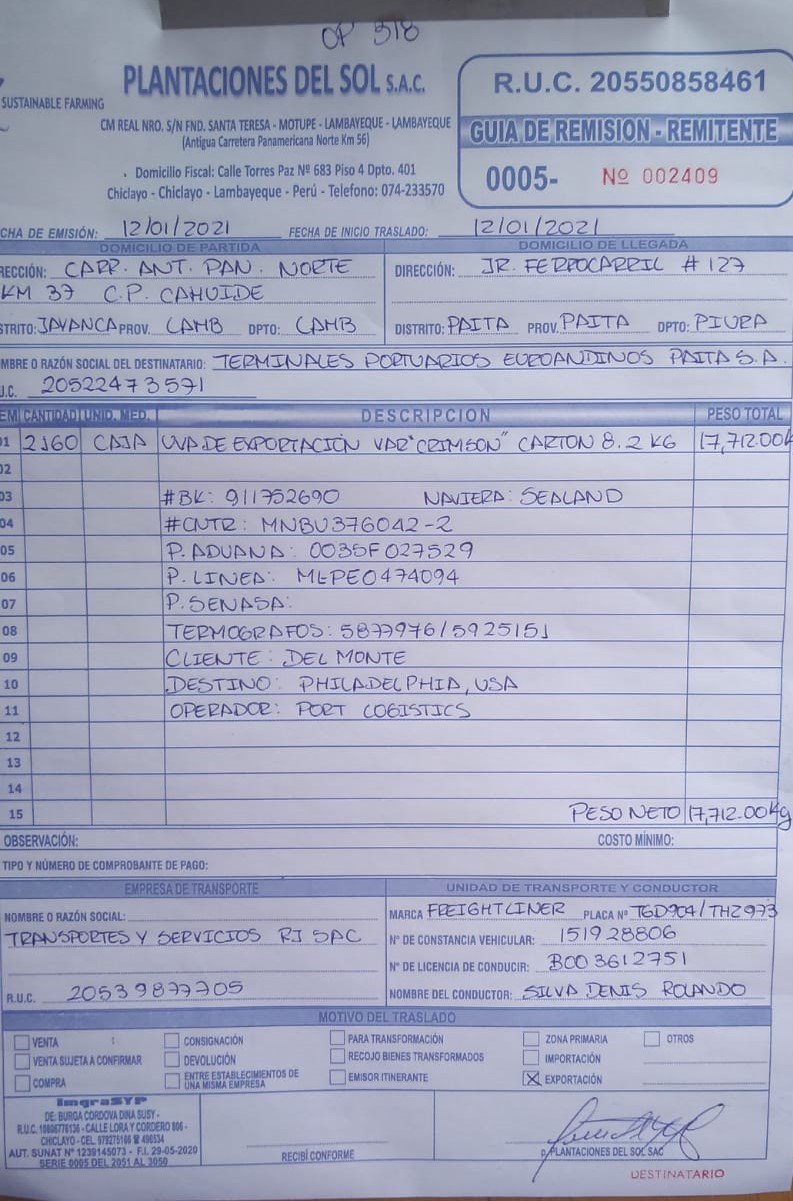 OP 318
SUSTAINABLE FARMING
PLANTACIONES DEL SOL S.A.C.
CM REAL NRO. S/N FND. SANTA TERESA - MOTUPE - LAMBAYEQUE - LAMBAYEQUE
(Antigua Carretera Panamericana Norte Km 56)
Domicilio Fiscal: Calle Torres Paz Nº 683 Piso 4 Dpto. 401
Chiclayo - Chiclayo - Lambayeque - Perú - Telefono: 074-233570
R.U.C. 20550858461
GUIA DE REMISION - REMITENTE
0005- Nº 002409
CHA DE EMISIÓN: 12/01/2021 FECHA DE INICIO TRASLADO: 12/01/2021
DOMICILIO DE PARTIDA DOMICILIO DE LLEGADA
RECCIÓN: CARR. ANT. PAN. NORTE DIRECCIÓN: JR. FERROCARRIL # 127
KM 37 C.P. CAHUIDE
STRITO: JAYANCA PROV. LAMB DPTO: LAMB DISTRITO: PAITA PROV. PAITA DPTO: PIURA
MBRE O RAZÓN SOCIAL DEL DESTINATARIO: TERMINALES PORTUARIOS EUROANDINOS PAITA S.A.
U.C. 20522473571
EM CANTIDAD UNID. MED. DESCRIPCION PESO TOTAL
01 2160 CAJA UVA DE EXPORTACIÓN VAR "CRIMSON" CARTON 8.2 KG 17,712.00K
02
03 #BK: 911752690 NAVIERA: SEALAND
04 #CNTR: MNBU376042-2
05 P. ADUANA: 0035F027529
06 P. LINEA: MLPE0474094
07 P. SENASA:
08 TERMOGRAFOS: 5877976/5925151
09 CLIENTE: DEL MONTE
10 DESTINO: PHILADELPHIA, USA
11 OPERADOR: PORT LOGISTICS
12
13
14
15 PESO NETO 17,712.00Kg
OBSERVACIÓN: COSTO MÍNIMO:
TIPO Y NÚMERO DE COMPROBANTE DE PAGO:
EMPRESA DE TRANSPORTE UNIDAD DE TRANSPORTE Y CONDUCTOR
NOMBRE O RAZÓN SOCIAL: MARCA FREIGHTLINER PLACA Nº T6D904/THZ973
TRANSPORTES Y SERVICIOS RJ SAC Nº DE CONSTANCIA VEHICULAR: 151928806
Nº DE LICENCIA DE CONDUCIR: B003612751
R.U.C. 20539877705 NOMBRE DEL CONDUCTOR: SILVA DENIS ROLANDO
MOTIVO DEL TRASLADO
VENTA CONSIGNACIÓN PARA TRANSFORMACIÓN ZONA PRIMARIA OTROS
VENTA SUJETA A CONFIRMAR DEVOLUCIÓN RECOJO BIENES TRANSFORMADOS IMPORTACIÓN
COMPRA ENTRE ESTABLECIMIENTOS DE UNA MISMA EMPRESA EMISOR ITINERANTE X EXPORTACIÓN
ImgraSYP
DE: BURGA CORDOVA DINA SUSY -
CALLE LORA Y CORDERO
CHICLAYO - CEL.
AUT. SUNAT Nº 1239145073 - F.I. 29-05-2020
SERIE 0005 DEL 2051 AL 3050
RECIBÍ CONFORME
p. PLANTACIONES DEL SOL SAC
DESTINATARIO